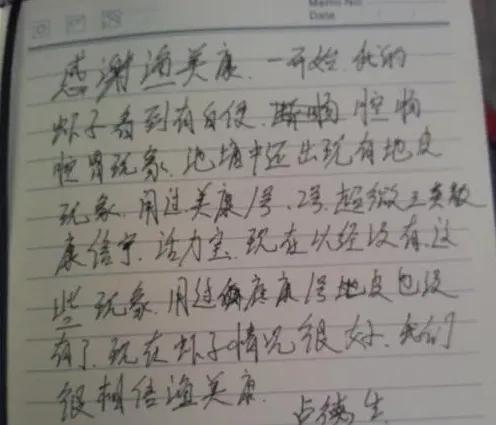 Memo No.
Date
感谢渔美康.一开始.我的
虾子看到有白便.肠腔肠
腔胃现象.池塘中还出现有地皮
现象.用过美康1号.2号.超微三黄散
康倍宁.活力宝.现在以经没有.这
些现象.用过底康1号地皮包没
有了.现在虾子情况很好.我们
很相信渔美康.
占德生